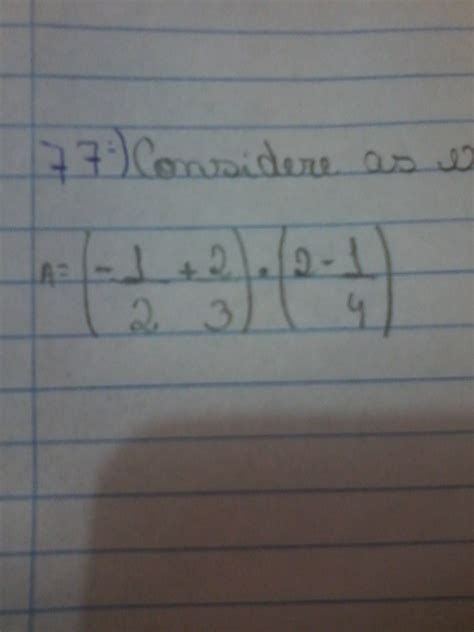 77:) Considere as
A = (-1/2 + 2/3) . (2 - 1/4)